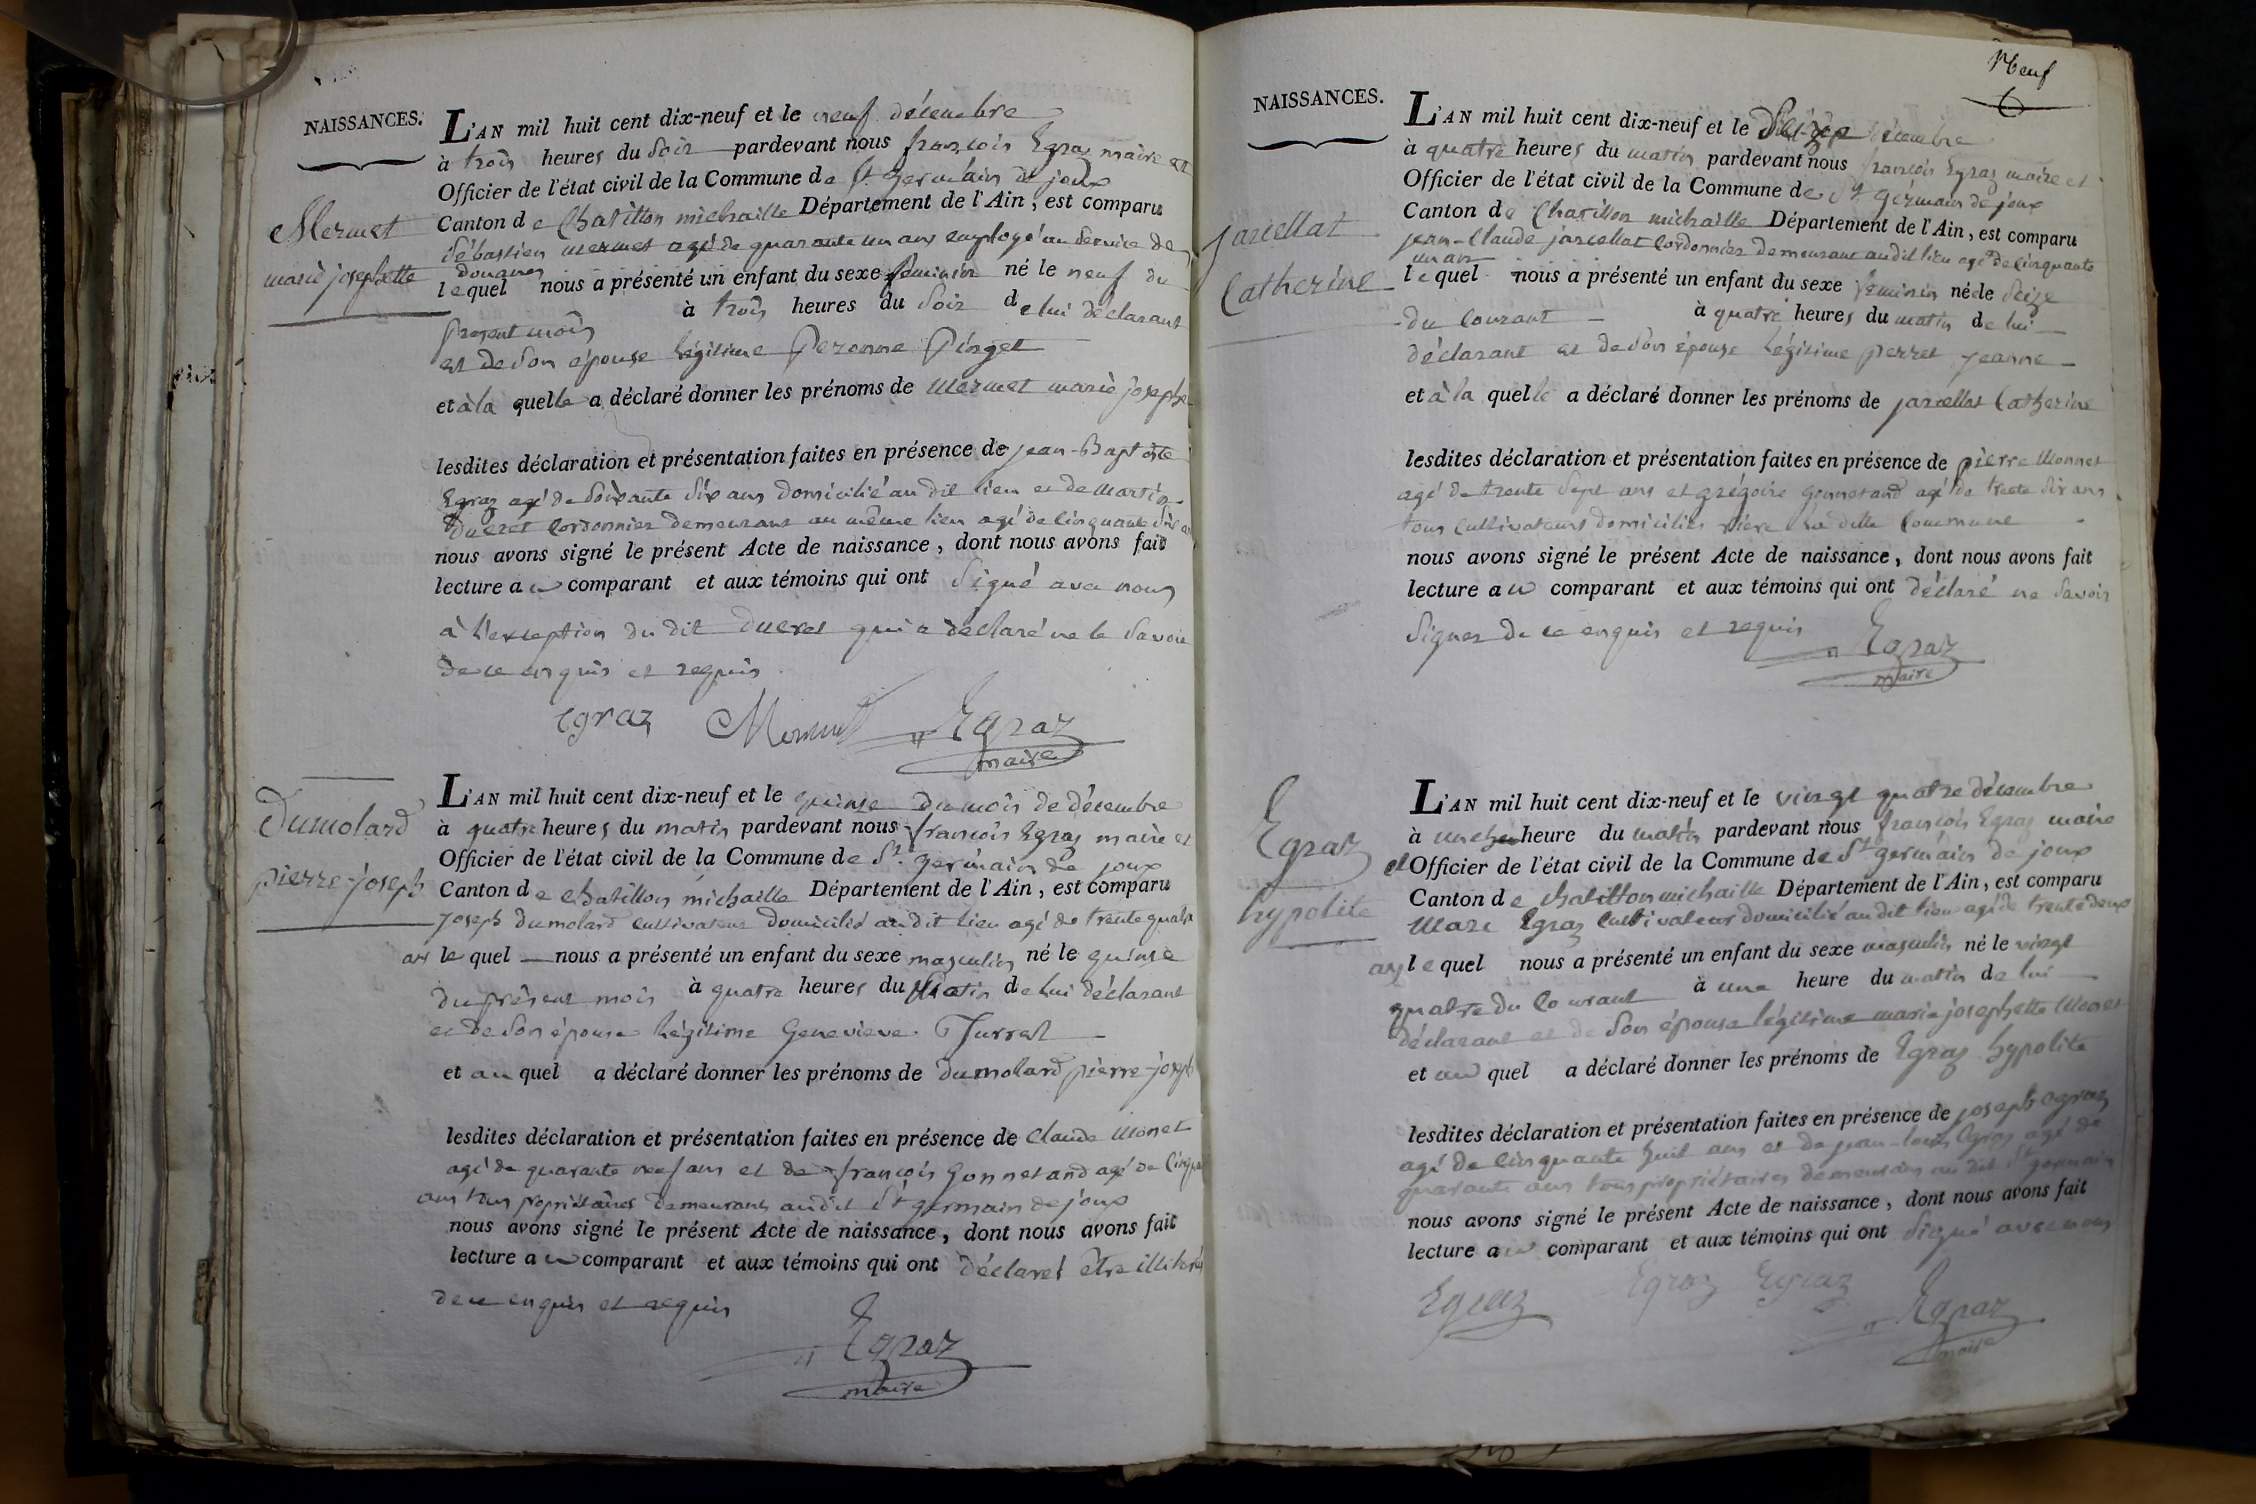 NAISSANCES.
L'AN mil huit cent dix-neuf et le neuf décembre
à trois heures du soir pardevant nous françois Egraz maire et
Officier de l'état civil de la Commune de St germain de joux
Canton de Chatillon michaille Département de l'Ain, est comparu
Mermet
marie josephette
sébastien mermet agé de quarante un ans employé au service des
douanes
lequel nous a présenté un enfant du sexe feminin né le neuf du
present mois à trois heures du soir de lui déclarant
et de son épouse légitime Peronne Pinget
et à la quelle a déclaré donner les prénoms de mermet marie josephe
lesdites déclaration et présentation faites en présence de jean-Baptiste
Egraz agé de soixante six ans domicilié au dit lieu et de martin
Ducret Cordonnier demeurant au même lieu agé de cinquante six ans
nous avons signé le présent Acte de naissance, dont nous avons fait
lecture au comparant et aux témoins qui ont signé avec nous
à l'exception du dit Ducret qui a déclaré ne le savoir
de ce enquis et requis
Egraz Mermet Egraz
maire
Dumolard
pierre-joseph
L'AN mil huit cent dix-neuf et le quinse du mois de décembre
à quatre heures du matin pardevant nous françois Egraz maire et
Officier de l'état civil de la Commune de St germain de joux
Canton de chatillon michaille Département de l'Ain, est comparu
joseph dumolard cultivateur domicilié au dit lieu agé de trente quatre
ans lequel nous a présenté un enfant du sexe masculin né le quinse
du présent mois à quatre heures du matin de lui déclarant
et de son épouse légitime Genevieve
et au quel a déclaré donner les prénoms de dumolard pierre-joseph
lesdites déclaration et présentation faites en présence de Claude Monet
agé de quarante neuf ans et de françois Gonnetand agé de
ans tous propriétaires demeurants audit St germain de joux
nous avons signé le présent Acte de naissance, dont nous avons fait
lecture au comparant et aux témoins qui ont déclarés être illiterés
de ce enquis et requis
Egraz
maire
Neuf
NAISSANCES.
L'AN mil huit cent dix-neuf et le décembre
à quatre heures du matin pardevant nous françois Egraz maire et
Officier de l'état civil de la Commune de St germain de joux
Canton de Chatillon michaille Département de l'Ain, est comparu
jarcellat
Catherine
jean-Claude jarcellat Cordonnier demeurant audit lieu agé de Cinquante
un ans
lequel nous a présenté un enfant du sexe feminin né le seize
du Courant à quatre heures du matin de lui
déclarant et de son épouse légitime perret jeanne
et à la quelle a déclaré donner les prénoms de jarcellat Catherine
lesdites déclaration et présentation faites en présence de pierre Monnet
agé de trente sept ans et grégoire gonnetand agé de trente six ans
tous cultivateurs domiciliés rière la ditte Commune
nous avons signé le présent Acte de naissance, dont nous avons fait
lecture au comparant et aux témoins qui ont déclaré ne savoir
signer de ce enquis et requis
Egraz
maire
Egraz
hypolite
L'AN mil huit cent dix-neuf et le vingt quatre décembre
à une heure du matin pardevant nous françois Egraz maire
et Officier de l'état civil de la Commune de St germain de joux
Canton de chatillon michaille Département de l'Ain, est comparu
Marc Egraz Cultivateur domicilié au dit lieu agé de trente deux
ans lequel nous a présenté un enfant du sexe masculin né le vingt
quatre du Courant à une heure du matin de lui
déclarant et de son épouse légitime marie josephette Monet
et au quel a déclaré donner les prénoms de Egraz hypolite
lesdites déclaration et présentation faites en présence de joseph Egraz
agé de cinquante huit ans et de jean-louis Egraz agé de
quarante ans tous propriétaires demeurans au dit St germain
nous avons signé le présent Acte de naissance, dont nous avons fait
lecture au comparant et aux témoins qui ont signé avec nous
Egraz Egraz Egraz
Egraz
maire